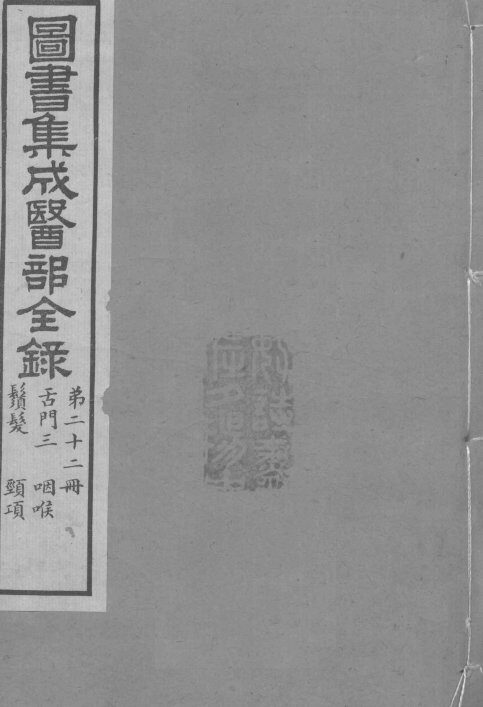 圖書集成醫部全錄
弟二十二冊
舌門三 咽喉
鬚髮 頸項